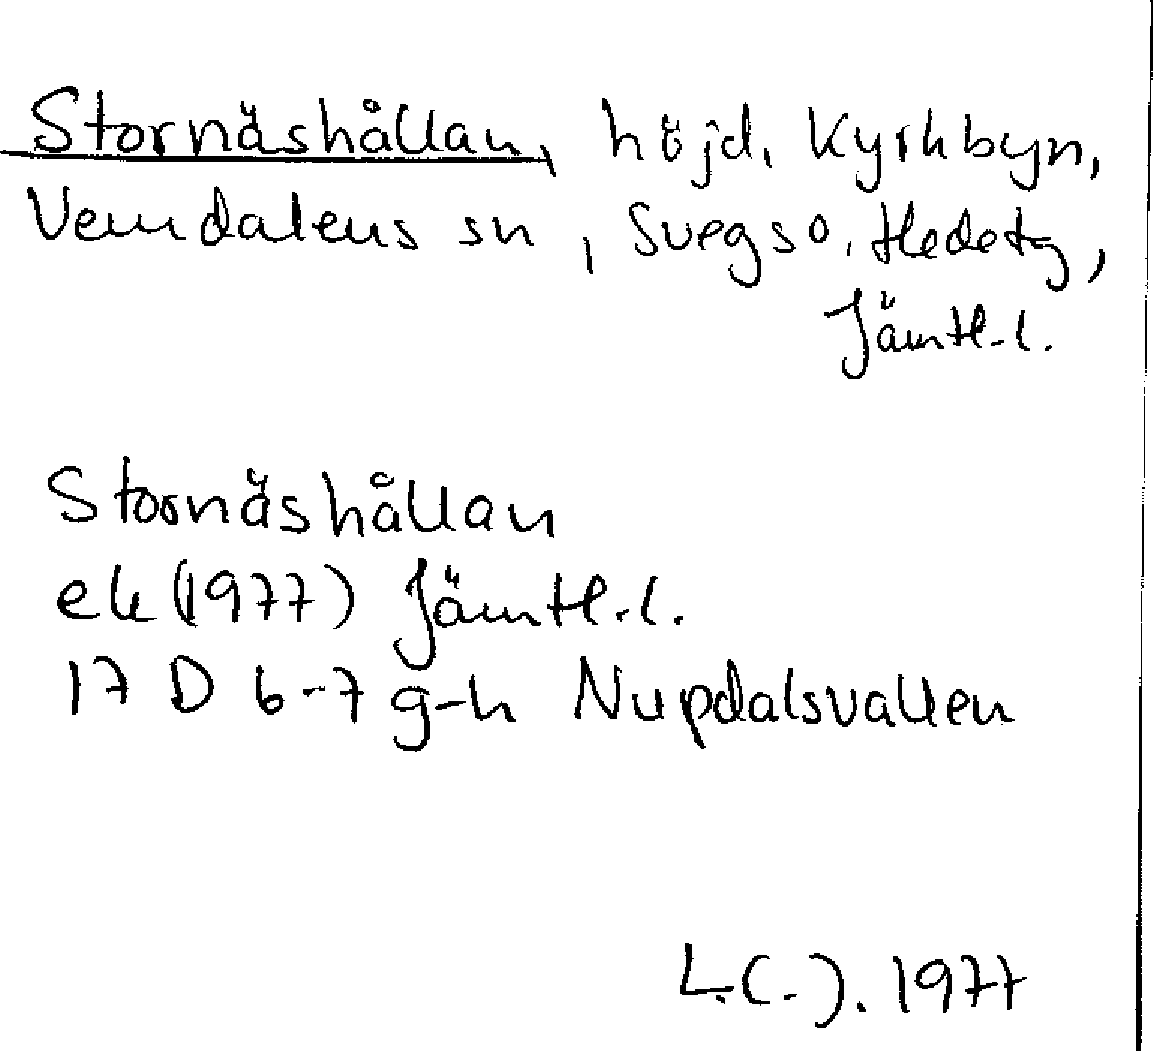 Stornäshållan, höjd, Kyrkbyn,
Vemdalens sn, Svegs o. Hedetg,
Jämtl.l.
Stornäshållan
ek (1977) Jämtl.l.
17 D 6-7 g-h Nupdalsvallen
L.C.J. 1977